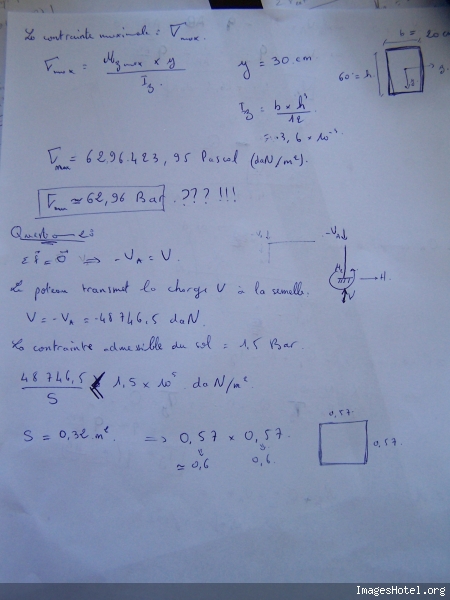 La contrainte maximale = σmax.
σmax = Mz max × y / Iz.
y = 30 cm
b = 20 cm
60 = h
y
Iz = b × h³ / 12
= 3,6 × 10⁻³.
σmax = 6296423,95 Pascal (daN/m²).
σmax ≃ 62,96 Bar. ??? !!!
Question 2:
Σ F = 0 ⇒ -VA = V.
-VA
H.
V
Le poteau transmet la charge V à la semelle.
V = -VA = -48746,5 daN.
La contrainte admissible du sol = 1,5 Bar.
48746,5 / S < 1,5 × 10⁵ daN/m².
S = 0,32 m² ⇒ 0,57 × 0,57.
≃ 0,6 0,6.
0,57.
0,57.
ImagesHotel.org